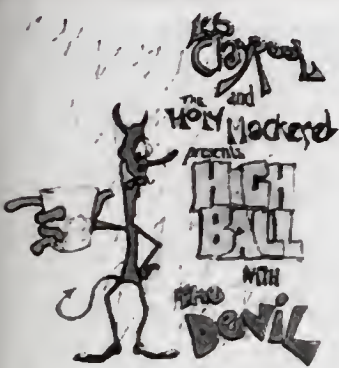 Les
Claypool
and
THE
HOLY Mackerel
presents
HIGH
BALL
WITH
THE
DEVIL